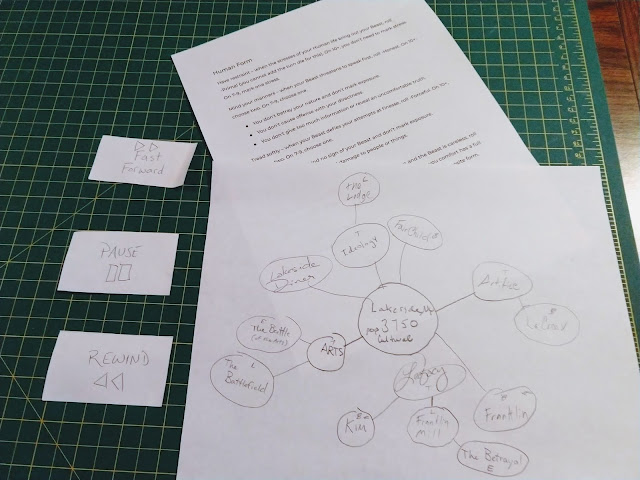 Human Form
Have restraint – when the stressors of your Human life bring out your Beast, roll
Animal (you cannot add the turn die for this). On 10+, you don't need to mark stress.
On 7-9, mark one stress.
Mind your manners – when your Beast threatens to speak first, roll Honest. On 10+,
choose two. On 7-9, choose one.
You don't betray your nature and don't mark exposure.
You don't cause offense with your directness.
You don't give too much information or reveal an uncomfortable truth.
Tread softly – when your Beast defies your attempts at finesse, roll
two. On 7-9, choose one.
no sign of your Beast and don't mark exposure.
damage to people or things.
and the Beast is careless, roll
you comfort has a full
Fast
Forward
PAUSE
REWIND
the
Lodge
Lakeside
Diner
Lakeside
pop 3750
The Battle
ARTS
The
Battlefield
Legacy
Kim
Franklin
Mill
Franklin
The Betrayal
E